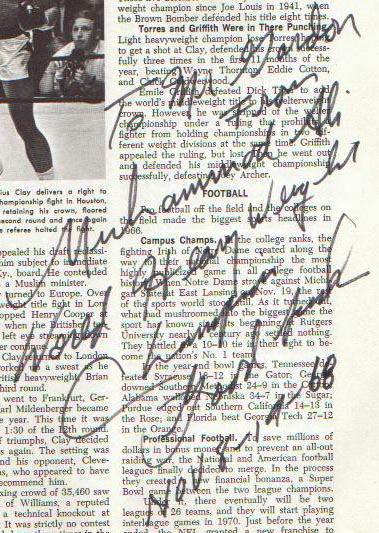 weight champion since Joe Louis in 1941, when
the Brown Bomber defended his title eight times.
Torres and Griffith Were in There Punching.
Light heavyweight champion Jose Torres,
to get a shot at Clay, defended his crown success-
fully three times in the first 11 months of the
year, beating Wayne Thornton, Eddie Cotton,
and Chic Calderwood.
Emile Griffith defeated Dick Tiger to add
the world's middleweight title to welterweight
crown. However, he was stripped of the welter
championship under a ruling that prohibits
fighter from holding championships in two dif-
ferent weight divisions at the same time. Griffith
appealed the ruling, but lost. he went out
and defended his middleweight championship
successfully, defeating Joey Archer.
FOOTBALL
Pro football off the field and the colleges on
the field made the biggest headlines in
1966.
Campus Champs. In the college ranks, the
fighting Irish of Notre Dame created along the
way to their national championship the most
highly publicized game in all college football
when Notre Dame strove against Michi-
gan State at East Lansing Nov. 19, the rest
of the sports world stood still. As it turned out,
what had mushroomed into the biggest game the
sport has known since its beginning at Rutgers
University nearly a century ago settled nothing.
They battled to a 10–10 tie in the fight to be-
come the nation's No. 1 team.
In the year-end bowl games, Tennessee
defeated Syracuse 18–12 in the Gator; Georgia
downed Southern Methodist 24–9 in the Cotton;
Alabama walloped Nebraska 34–7 in the Sugar;
Purdue edged out Southern California 14–13
in the Rose; and Florida beat Georgia Tech 27–12
in the Orange
Professional Football. To save millions of
dollars in bonus money and to prevent an all-out
raiding war, the National and American football
leagues finally decided to merge. In the process
they created a new financial bonanza, a Super
Bowl game between the two league champions.
there eventually will be two
leagues 26 teams, and they will start playing
interleague games in 1970. Just before the year
ended, the NFL granted a new franchise to
ius Clay delivers a right to
hampionship fight in Houston,
retaining his crown, floored
second round and once again
e referee halted the fight.
ppealed his draft classifi-
him subject to immediate
Ky., board. He contended
a Muslim minister.
turned to Europe. Over
weight title fight in Lon-
opped Henry Cooper
when the British
left eye streaming
er continue.
Clay to London
workout in a sweat he
British heavyweight Brian
third round.
went to Frankfurt, Ger-
Karl Mildenberger became
he year. This time it was
1:30 of the 12th round.
f triumphs, Clay decided
s again. The setting was
nd his opponent, Cleve-
s, who appeared to have
recommend him.
xing crowd of 35,460 saw
of Williams, a reputed
a technical knockout at
It was strictly no contest
To Mr.
From
Muhammad Ali
World Heavy Weight
Champion
Good luck
68